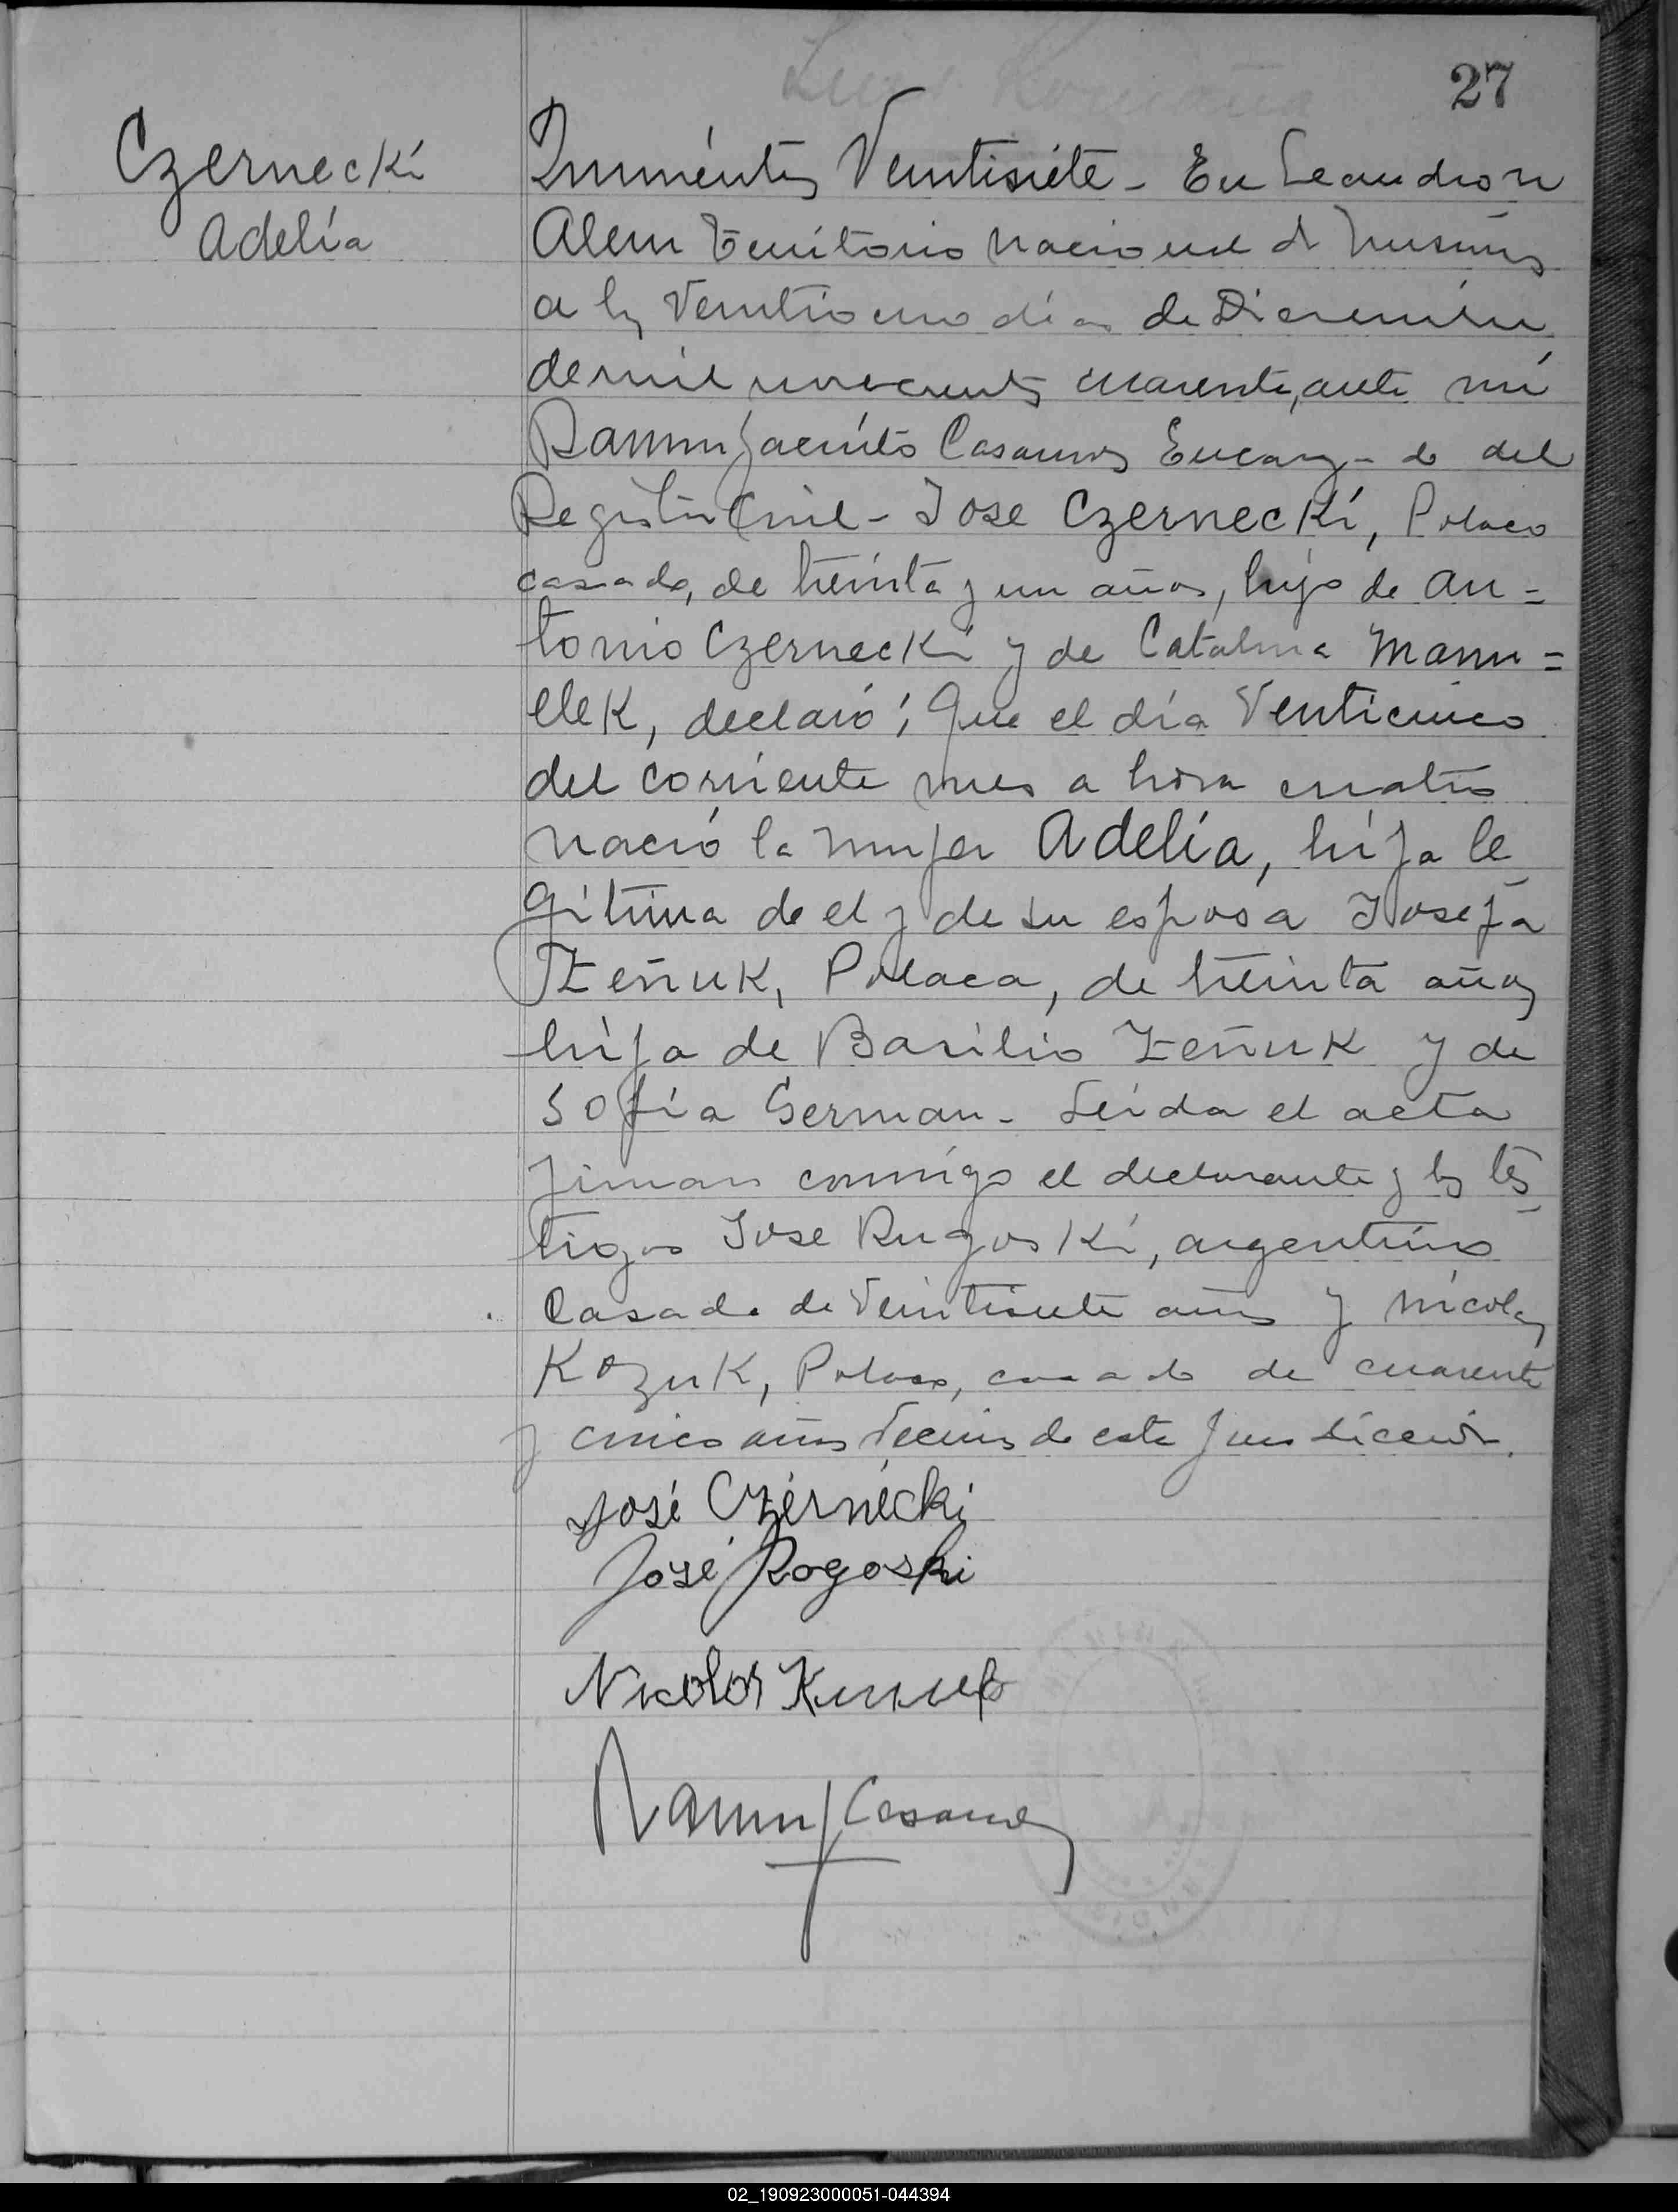 27
Czernecki
Adelia
Quinientos Veintisiete - En Leandro N
Alem Territorio Nacional de Misiones
a los Veintiouno dias de Diciembre
de mil novecientos cuarenta, ante mi
Ramon Jacinto Casanova Encargado del
Registro Civil - Jose Czernecki, Polaco
casado, de treinta y un años, hijo de An=
tonio Czernecki y de Catalina Manu=
elek, declaró; Que el día Venticinco
del corriente mes a hora cuatro
nació la mujer Adelia, hija le
gitima de el y de su esposa Josefa
Zeñuk, Polaca, de treinta años
hija de Basilio Zeñuk y de
Sofía German - Leida el acta
firman conmigo el declarante y los tes
tigos Jose Rugoski, argentino
Casado de Veintisiete años y Nicolas
Kozuk, Polaco, casado de cuarenta
y cinco años Vecinos de esta
José Czernecki
José Rogoski
Nicolos
Ramon J Casanova
02_190923000051-044394